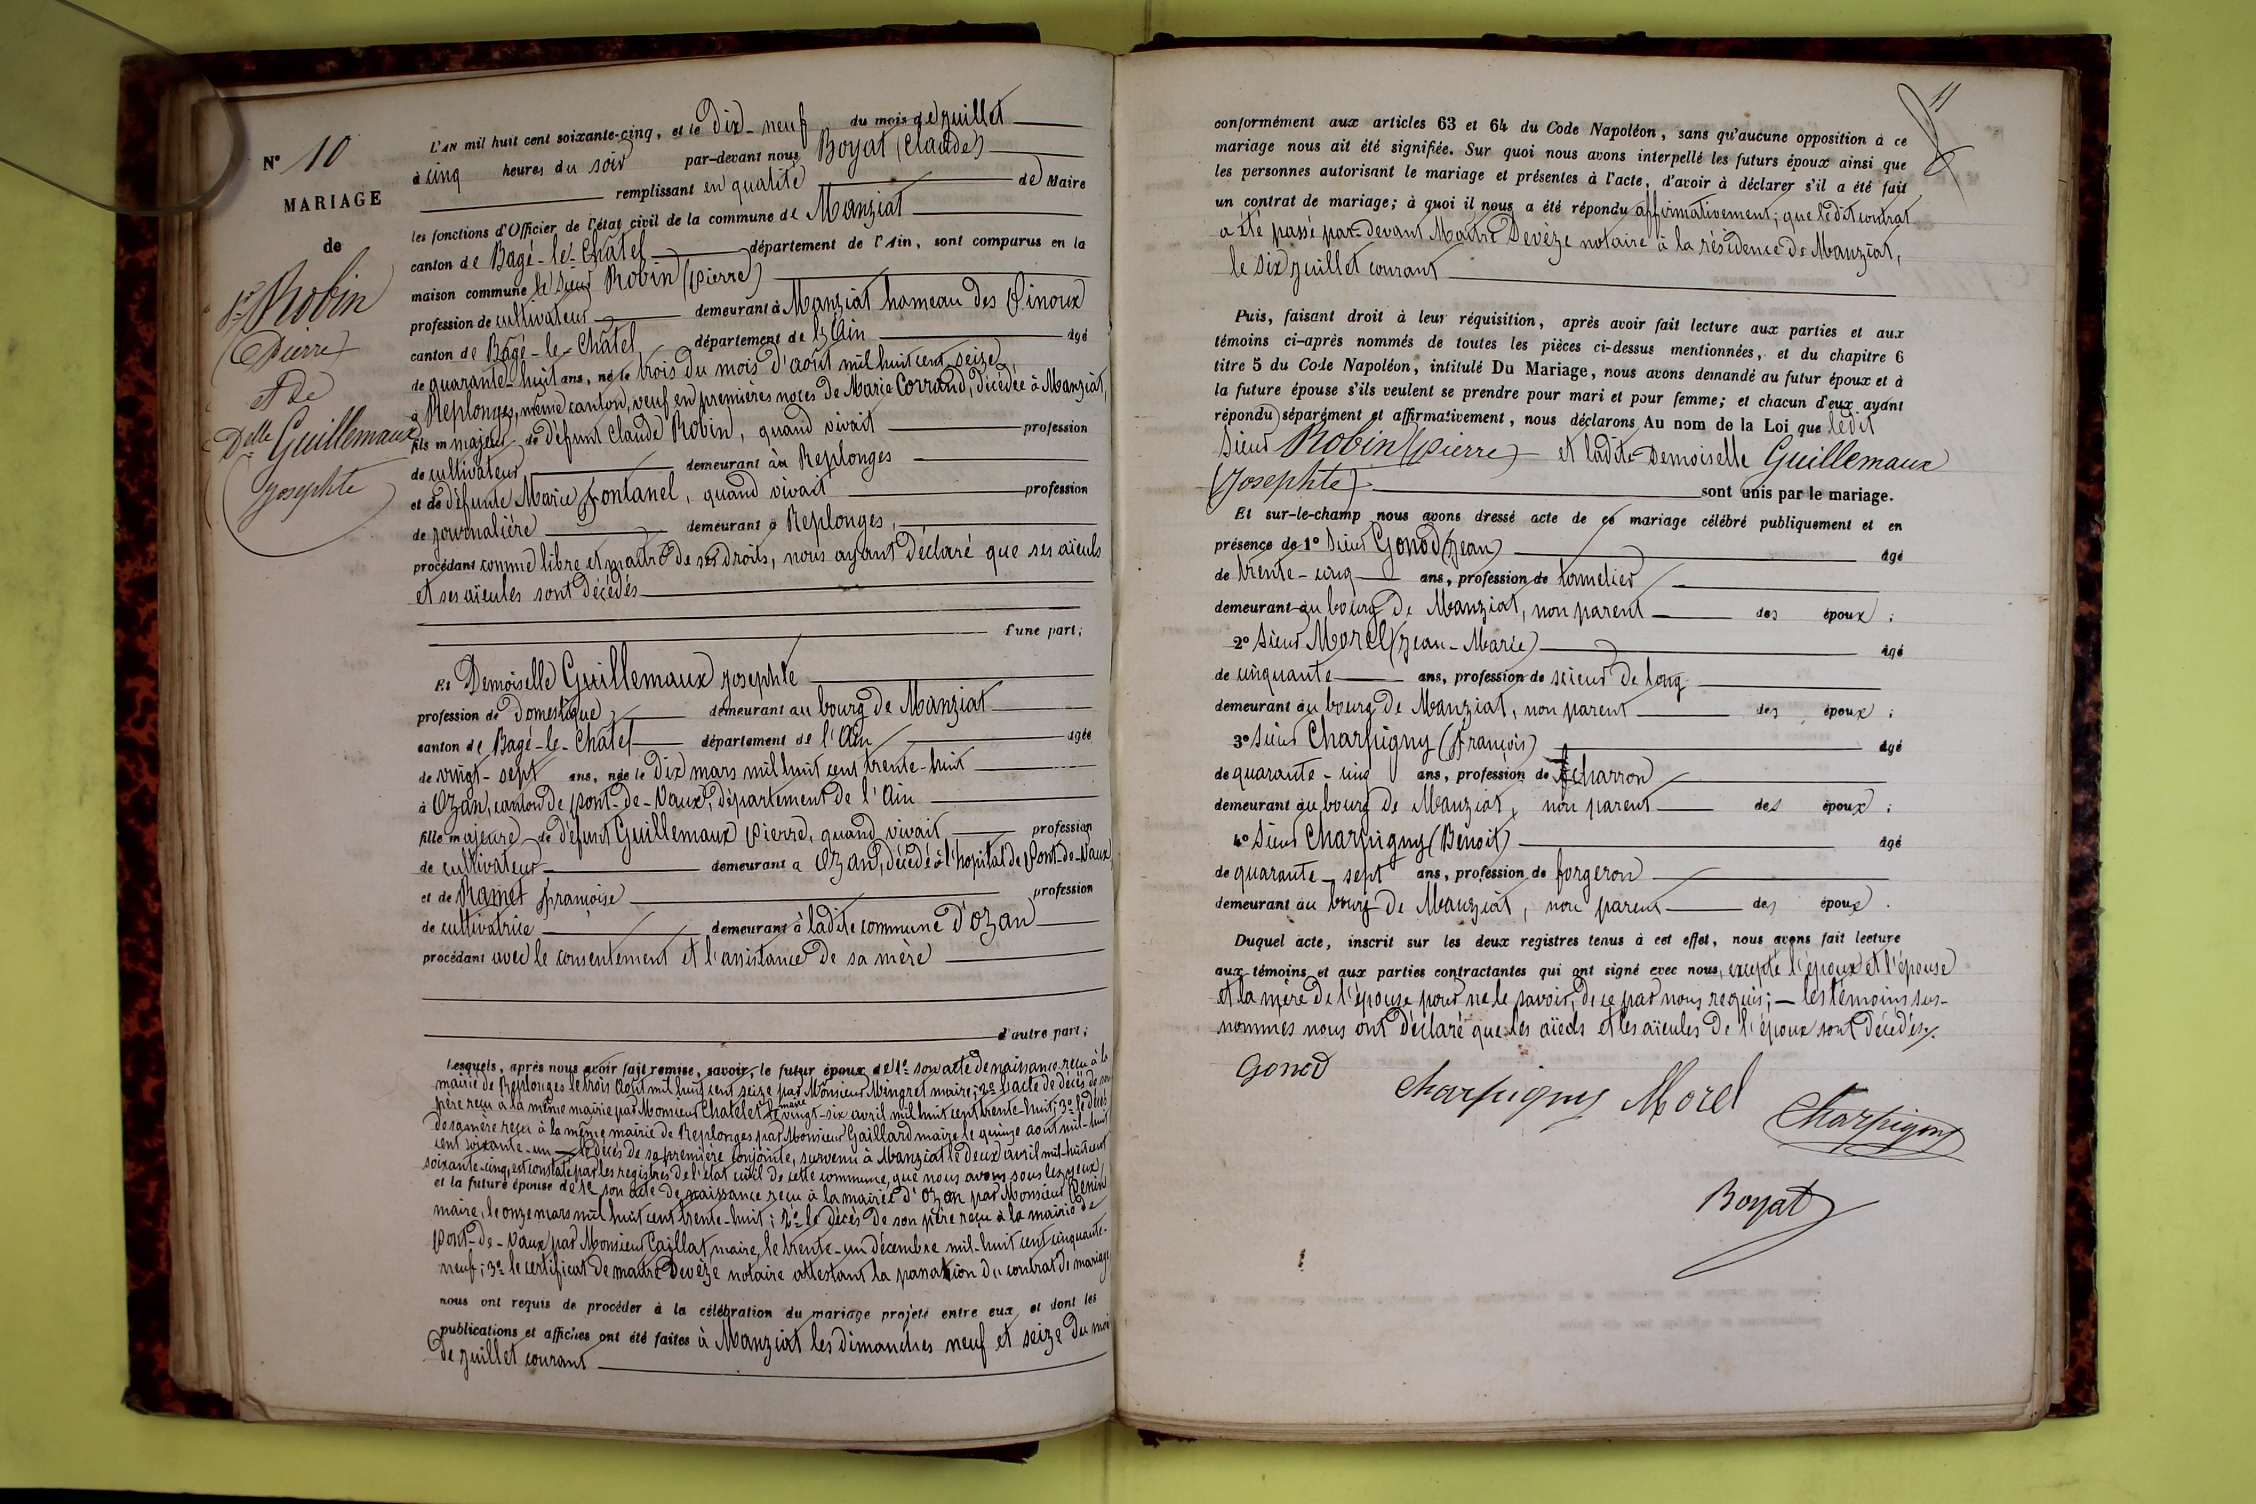 N° 10
MARIAGE
de
Sr Robin
(Pierre)
et de
Delle Guillemaux
Josephte
L'AN mil huit cent soixante-cinq, et le dix-neuf du mois de juillet
à cinq heures du soir par-devant nous Boyat (Claude)
remplissant en qualité de Maire
les fonctions d'Officier de l'état civil de la commune de Manziat
canton de Bagé-le-Châtel département de l'Ain, sont comparus en la
maison commune le sieur Robin (Pierre)
profession de cultivateur demeurant à Manziat hameau des Pinoux
canton de Bagé-le-Châtel département de l'Ain âgé
de quarante-huit ans, né le trois du mois d'août mil huit cent seize
à Replonges, même canton, veuf en premières noces de Marie Corrand, décédée à Manziat,
fils majeur de défunt Claude Robin, quand vivait profession
de cultivateur demeurant à Replonges
et de défunte Marie Fontanel, quand vivait profession
de journalière demeurant à Replonges,
procédant comme libre et maître de ses droits, nous ayant déclaré que ses aïeuls
et ses aïeules sont décédés
d'une part;
Et Demoiselle Guillemaux Josephte
profession de domestique demeurant au bourg de Manziat
canton de Bagé-le-Châtel département de l'Ain âgée
de vingt-sept ans, née le dix mars mil huit cent trente-huit
à Ozan, canton de Pont-de-Vaux, département de l'Ain
fille majeure de défunt Guillemaux Pierre, quand vivait profession
de cultivateur demeurant à Ozan, décédé à l'hopital de Pont-de-Vaux
et de Ramet Françoise profession
de cultivatrice demeurant à ladite commune d'Ozan
procédant avec le consentement et l'assistance de sa mère
d'autre part;
Lesquels, après nous avoir fait remise, savoir, le futur époux de 1° son acte de naissance reçu à la
mairie de Replonges le trois août mil huit cent seize par Monsieur Mingret maire; 2° l'acte de décès de son
père reçu à la même mairie par Monsieur Chatelet maire le vingt-six avril mil huit cent trente-huit; 3° le décès
de sa mère reçu à la même mairie de Replonges par Monsieur Gaillard maire le quinze août mil-huit
cent soixante-un le décès de sa première conjointe, survenu à Manziat le deux avril mil-huit cent
soixante-cinq, est constaté par les registres de l'état civil de cette commune, que nous avons sous les yeux,
et la future épouse de 1° son acte de naissance reçu à la mairie d'Ozan par Monsieur Penin
maire, le onze mars mil huit cent trente-huit; 2° le décès de son père reçu à la mairie de
Pont-de-Vaux par Monsieur Caillat, maire, le trente-un décembre mil-huit cent cinquante-
neuf; 3° le certificat de maître Devèze notaire attestant la passation du contrat de mariage
nous ont requis de procéder à la célébration du mariage projeté entre eux, et dont les
publications et affiches ont été faites à Manziat les dimanches neuf et seize du mois
de juillet courant
11
conformément aux articles 63 et 64 du Code Napoléon, sans qu'aucune opposition à ce
mariage nous ait été signifiée. Sur quoi nous avons interpellé les futurs époux ainsi que
les personnes autorisant le mariage et présentes à l'acte, d'avoir à déclarer s'il a été fait
un contrat de mariage; à quoi il nous a été répondu affirmativement; que ledit contrat
a été passé par-devant Maître Devèze notaire à la résidence de Manziat,
le six juillet courant
Puis, faisant droit à leur réquisition, après avoir fait lecture aux parties et aux
témoins ci-après nommés de toutes les pièces ci-dessus mentionnées, et du chapitre 6
titre 5 du Code Napoléon, intitulé Du Mariage, nous avons demandé au futur époux et à
la future épouse s'ils veulent se prendre pour mari et pour femme; et chacun d'eux ayant
répondu séparément et affirmativement, nous déclarons Au nom de la Loi que ledit
sieur Robin (Pierre) et ladite Demoiselle Guillemaux
(Josephte) sont unis par le mariage.
Et sur-le-champ nous avons dressé acte de ce mariage célébré publiquement et en
présence de 1° sieur Gonod (Jean) âgé
de trente-cinq ans, profession de tonnelier
demeurant au bourg de Manziat, non parent des époux;
2° sieur Morel (Jean-Marie) âgé
de cinquante ans, profession de scieur de long
demeurant au bourg de Manziat, non parent des époux;
3° sieur Charpigny (François) âgé
de quarante-cinq ans, profession de charron
demeurant au bourg de Manziat, non parent des époux;
4° sieur Charpigny (Benoit) âgé
de quarante-sept ans, profession de forgeron
demeurant au bourg de Manziat, non parent des époux.
Duquel acte, inscrit sur les deux registres tenus à cet effet, nous avons fait lecture
aux témoins et aux parties contractantes qui ont signé avec nous, excepté l'époux et l'épouse
et la mère de l'épouse pour ne le savoir, de ce par nous requis; — les témoins sus-
nommés nous ont déclaré que les aïeuls et les aïeules de l'époux sont décédés.
Gonod
Charpigny Morel
Charpigny
Boyat